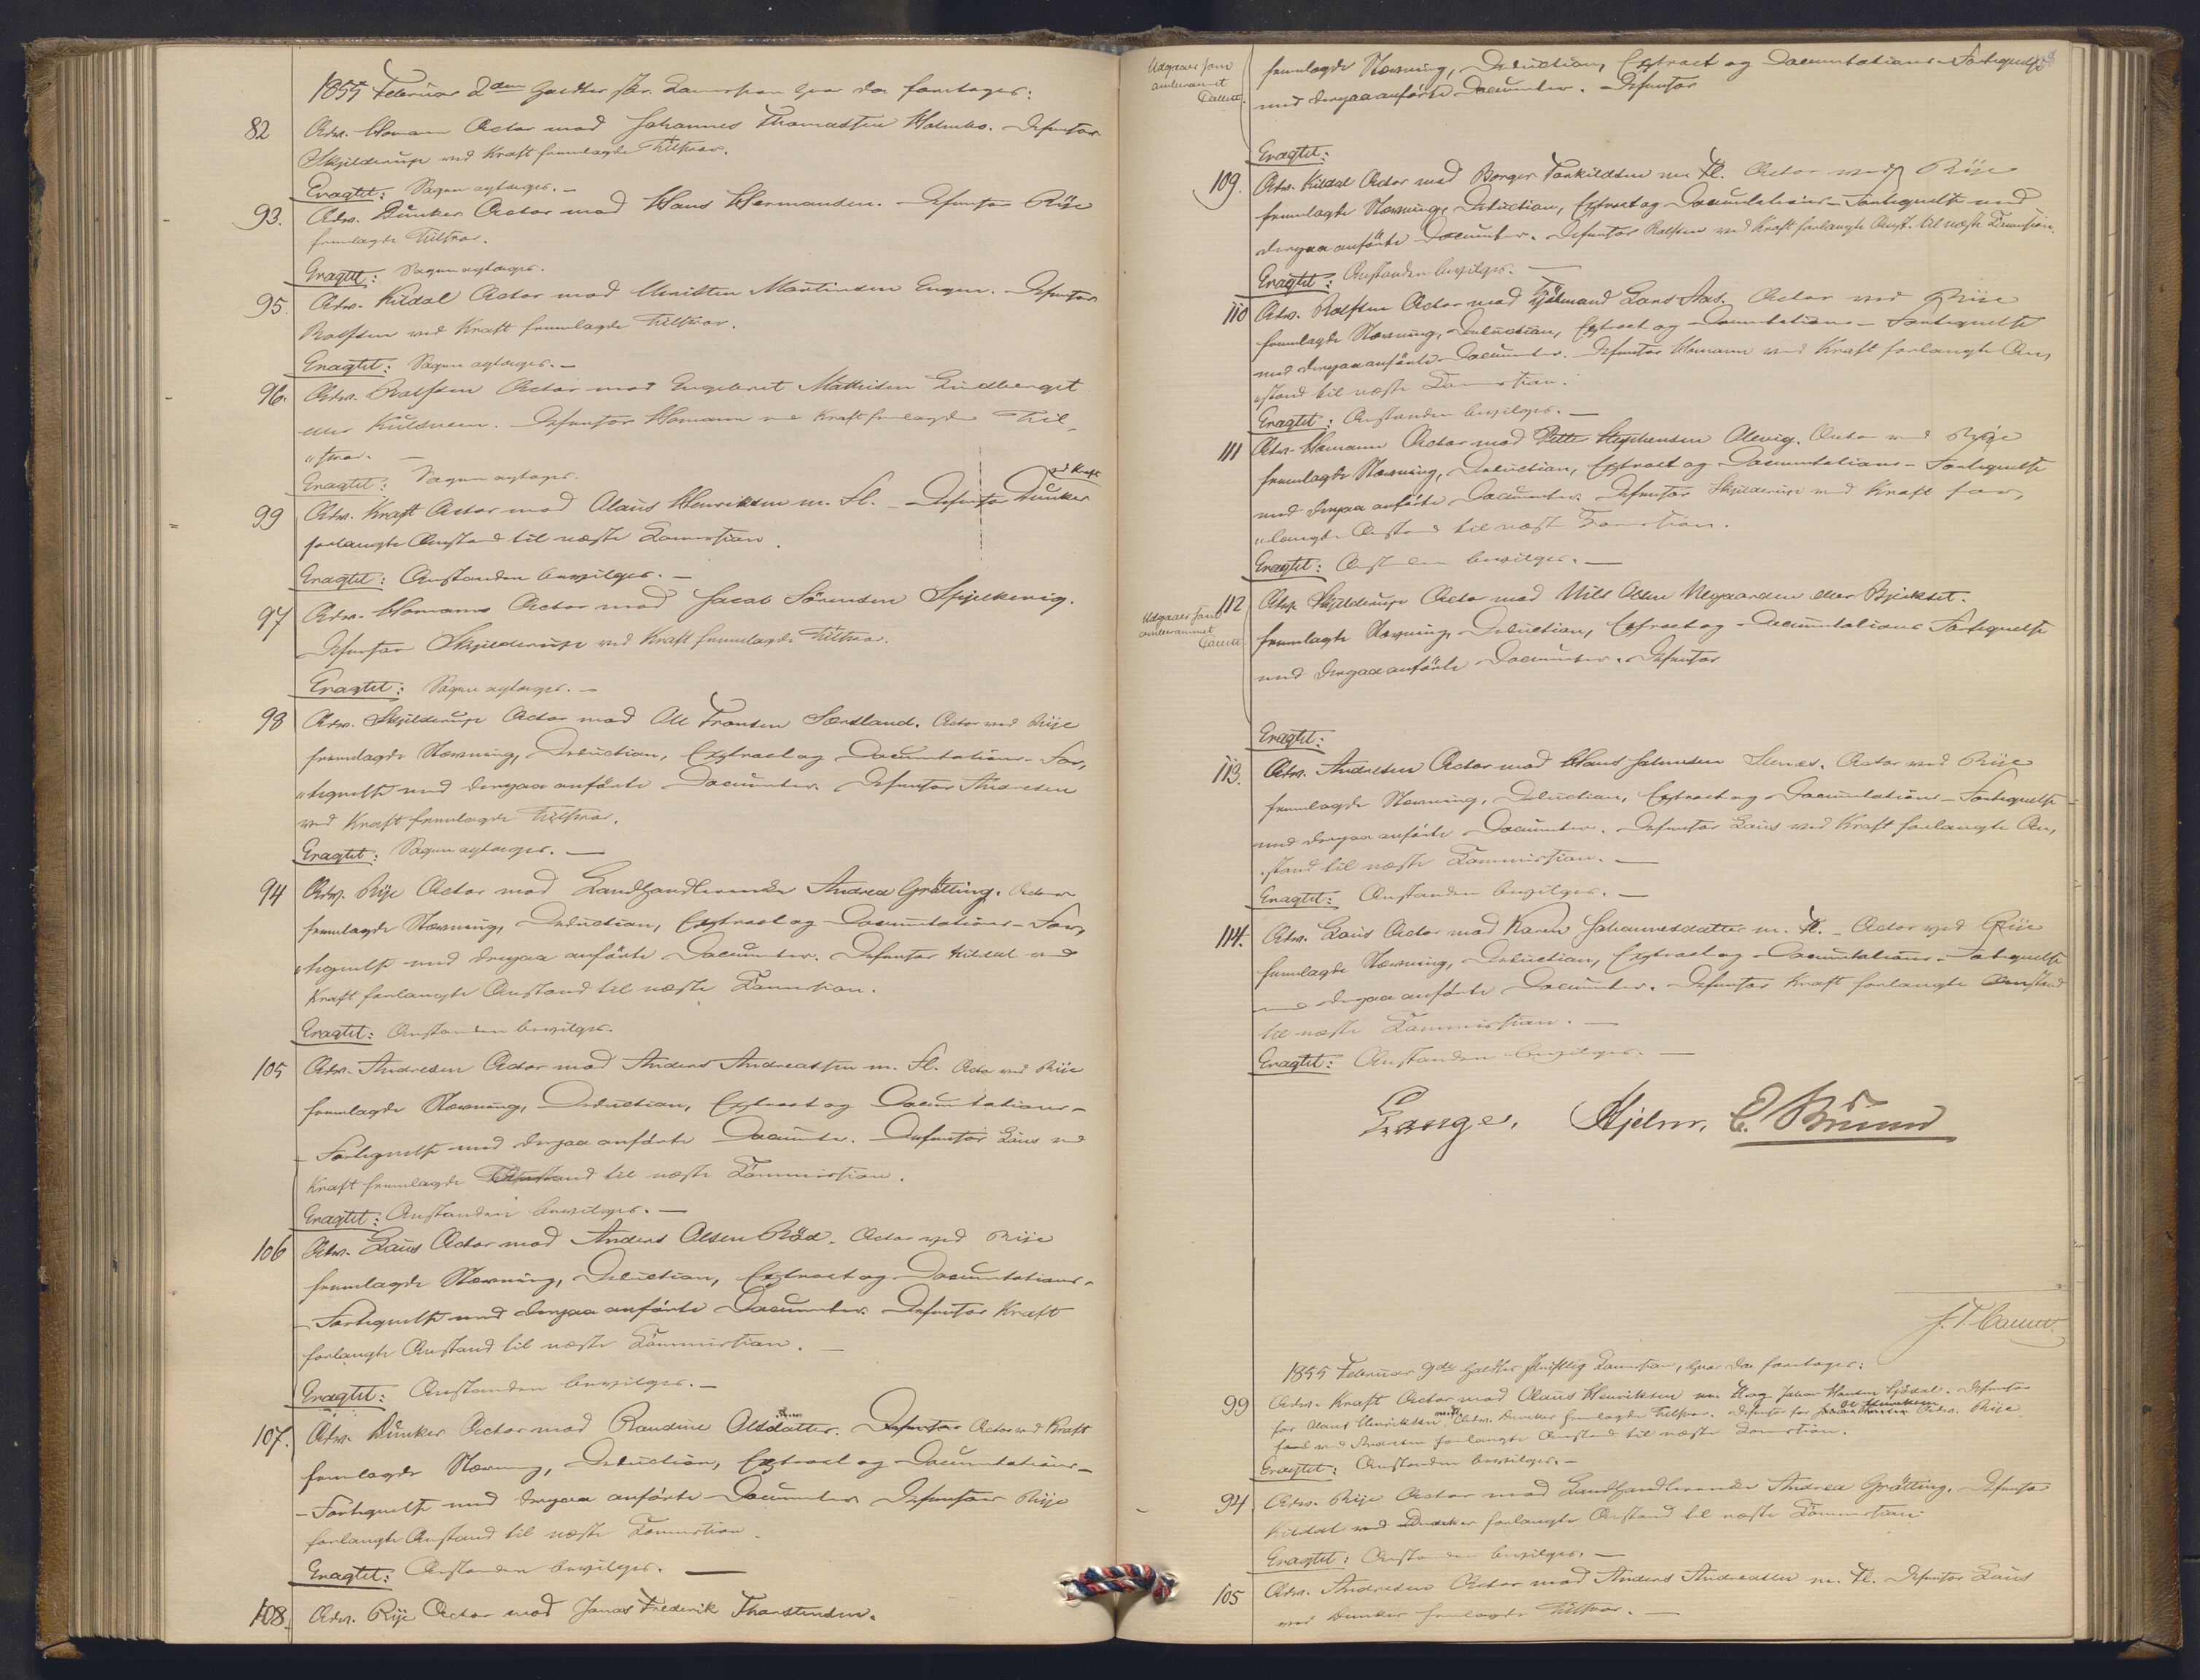 1855 Februar 2den holdtes skr. Commission hvor da foretoges:
82 Adv. Homann Actor mod Johannes Thomassen Holmbo. Defensor
Skjelderup ved Kraft fremlagde Tilsvar.
Eragtet: Sagen optages. —
93. Adv. Dunker Actor mod Hans Hermansen. Defensor Rije
fremlagde Tilsvar.
Eragtet: Sagen optages.
95. Adv. Kildal Actor mod Christen Martinsen Engen. Defensor
Rolfsen ved Kraft fremlagde Tilsvar.
Eragtet: Sagen optages. —
96. Adv. Rolfsen Actor mod Engebret Mathisen Lindberget
eller Kulsveen. Defensor Homann ved Kraft fremlagde Til-
"svar. —
Eragtet: Sagen optages.
99 Adv. Kraft Actor mod Olaus Henriksen m. Fl. — Defensor Dunker ved Kraft
forlangte Anstand til næste Commission.
Eragtet: Anstanden bevilges. —
97 Adv. Homann Actor mod Jacob Sörensen Spjelkevig.
Defensor Skjelderup ved Kraft fremlagde Tilsvar.
Eragtet: Sagen optages. —
98 Adv. Skjelderup Actor mod Ole Fransen Sandland. Actor ved Rije
fremlagde Stævning, Deduction, Extract og Documentations-For,
"tegnelse med derpaa anförte Documenter. Defensor Andresen
ved Kraft fremlagde Tilsvar.
Eragtet: Sagen optages. —
94 Adv. Rije Actor mod Landhandlerinde Andrea Grötting. Actor
fremlagde Stævning, Deduction, Extract og Documentations-For,
"tegnelse med derpaa anförte Documenter. Defensor Kildal ved
Kraft forlangte Anstand til næste Commission.
Eragtet: Anstanden bevilges.
105 Adv. Andresen Actor mod Anders Andreassen m. Fl. Actor ved Rije
fremlagde Stævning, Deduction, Extract og Documentations-
-Fortegnelse med derpaa anförte Documenter. Defensor Laus ved
Kraft fremlagde Anstand til næste Commission.
Eragtet: Anstanden bevilges. —
106 Adv. Laus Actor mod Anders Olsen Röd. Actor ved Rije
fremlagde Stævning, Deduction, Extract og Documentations-
-Fortegnelse med derpaa anförte Documenter. Defensor Kraft
forlangte Anstand til næste Commission. —
Eragtet: Anstanden bevilges. —
107. Adv. Dunker Actor mod Randine Olsdatter. Defensor Actor ved Kraft
fremlagde Stævning, Deduction, Extract og Documentations-
-Fortegnelse med derpaa anförte Documenter. Defensor Rije
forlangte Anstand til næste Commission.
Eragtet: Anstanden bevilges. —
108. Adv. Rije Actor mod Jonas Frederik Thorstensen.
Udgaaer som
anberammet
fremlagde Stævning, Deduction, Extract og Documentations-Fortegnelse
med derpaa anförte Documenter. Defensor
Eragtet:
109. Adv. Kildal Actor mod Borger Torkildsen m. Fl. Actor ved Rije
fremlagde Stævning, Deduction, Extract og Documentations-Fortegnelse med
derpaa anförte Documenter. Defensor Rolfsen ved Kraft forlangte Anst. til næste Commission.
Eragtet: Anstanden bevilges. —
110 Adv. Rolfsen Actor mod Lars Aas. Actor ved Rije
fremlagde Stævning, Deduction, Extract og Documentations-Fortegnelse
med derpaa anförte Documenter. Defensor Homann ved Kraft forlangte An,
"stand til næste Commission.
Eragtet: Anstanden bevilges. —
111 Adv. Homann Actor mod Petter Stephensen Alevig. Actor ved Rije
fremlagde Stævning, Deduction, Extract og Documentations-Fortegnelse
med derpaa anförte Documenter. Defensor Skjelderup ved Kraft for,
"langte Anstand til næste Commission.
Eragtet: Anstanden bevilges. —
Udgaaer som
anberammet
112 Adv. Skjelderup Actor mod Nils Olsen Nygaarden eller Bjerkset.
fremlagde Stævning, Deduction, Extract og Documentations Fortegnelse
med derpaa anförte Documenter. Defensor
Eragtet:
113. Adv. Andresen Actor mod Hans Johnsen Stenes. Actor ved Rije
fremlagde Stævning, Deduction, Extract og Documentations-Fortegnelse
med derpaa anförte Documenter. Defensor Laus ved Kraft forlangte An,
"stand til næste Commission. —
Eragtet: Anstanden bevilges. —
114. Adv. Laus Actor mod Karen Johannesdatter m. Fl. — Actor ved Rije
fremlagde Stævning, Deduction, Extract og Documentations-Fortegnelse
med derpaa anförte Documenter. Defensor Kraft forlangte Anstand
til næste Commission. —
Eragtet: Anstanden bevilges. —
Lange. Hjelm. C. Bruun
1855 Februar 9de holdtes skriftlig Commission, hvor da foretoges:
99 Adv. Kraft Actor mod Olaus Henriksen m. Fl. og Johan Hansen Sjödal. Defensor
for Olaus Henriksen Adv. Dunker fremlagde Tilsvar. Defensor for Adv. Rije
ved Andresen forlangte Anstand til næste Commission.
Eragtet: Anstanden bevilges. —
94 Adv. Rije Actor mod Landhandlerinde Andrea Grötting. Defensor
Kildal ved Dunker forlangte Anstand til næste Commission
Eragtet: Anstanden bevilges. —
105 Adv. Andresen Actor mod Anders Andreassen m. Fl. Defensor Laus
ved Dunker fremlagde Tilsvar. —